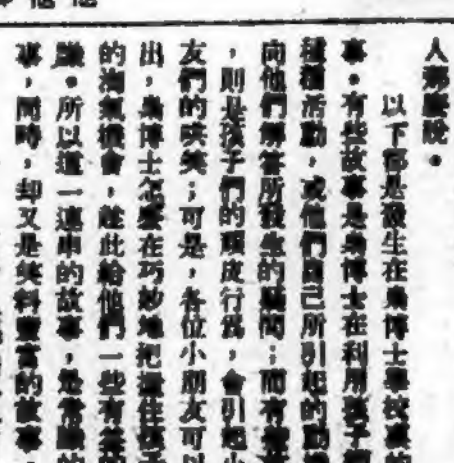 人鄰驗說。
以下都是發生在桑博士學校裏的
事。有些故事是桑博士在利用孩子們
種種活動,或他們自己所引起的動機
向他們解答所發生的疑問;而有些
,則是孩子們的頑皮行為,會引起小
友們的哄笑;可是,各位小朋友可以
出,桑博士怎麼在巧妙地把握住孩子
的淘氣機會,趁此給他們一些有益的
識。所以這一連串的故事,是常識的
事,同時,却又是笑料豐富的故事。